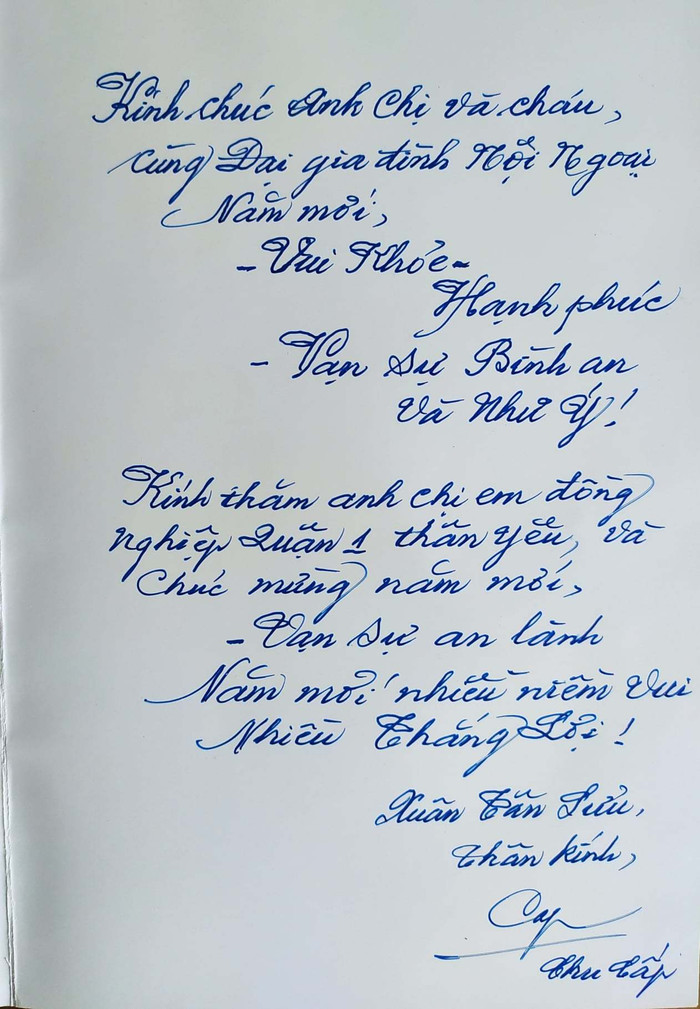 Kính chúc Anh Chị và cháu,
cùng Đại gia đình Nội Ngoại
Năm mới,
- Vui Khỏe -
Hạnh phúc
- Vạn sự Bình an
Và Như Ý!
Kính thăm anh chị em đồng
nghiệp Quận 1 thân yêu, và
Chúc mừng năm mới,
- Vạn sự an lành
Năm mới nhiều niềm vui
Nhiều Thắng Lợi!
Xuân Tân Sửu,
Thân kính,
Thu Cấp